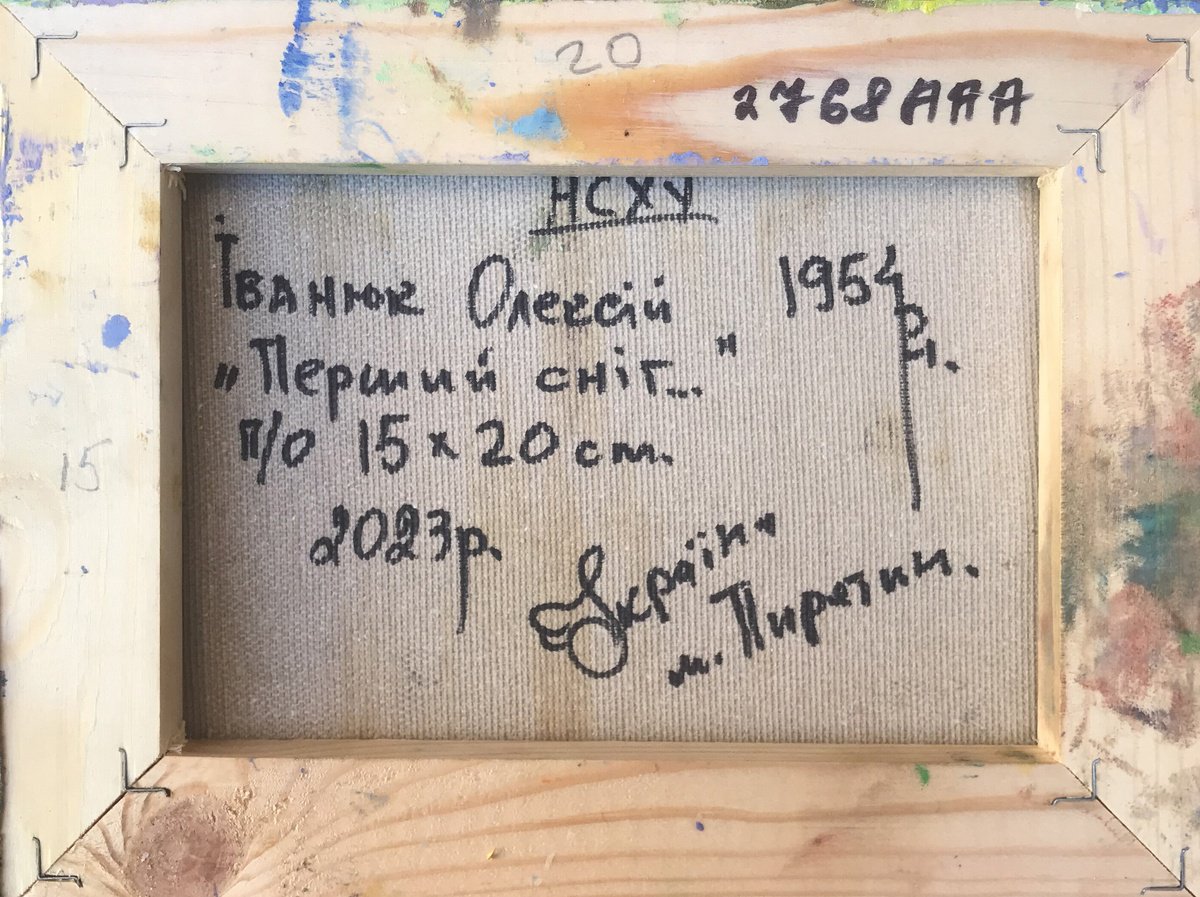 20
2768AAA
НСХУ
Іванюк Олексій 1954 р.н.
„Перший сніг..."
п/о 15 х 20 см.
15
2023р.
Україна
м. Пирятин.